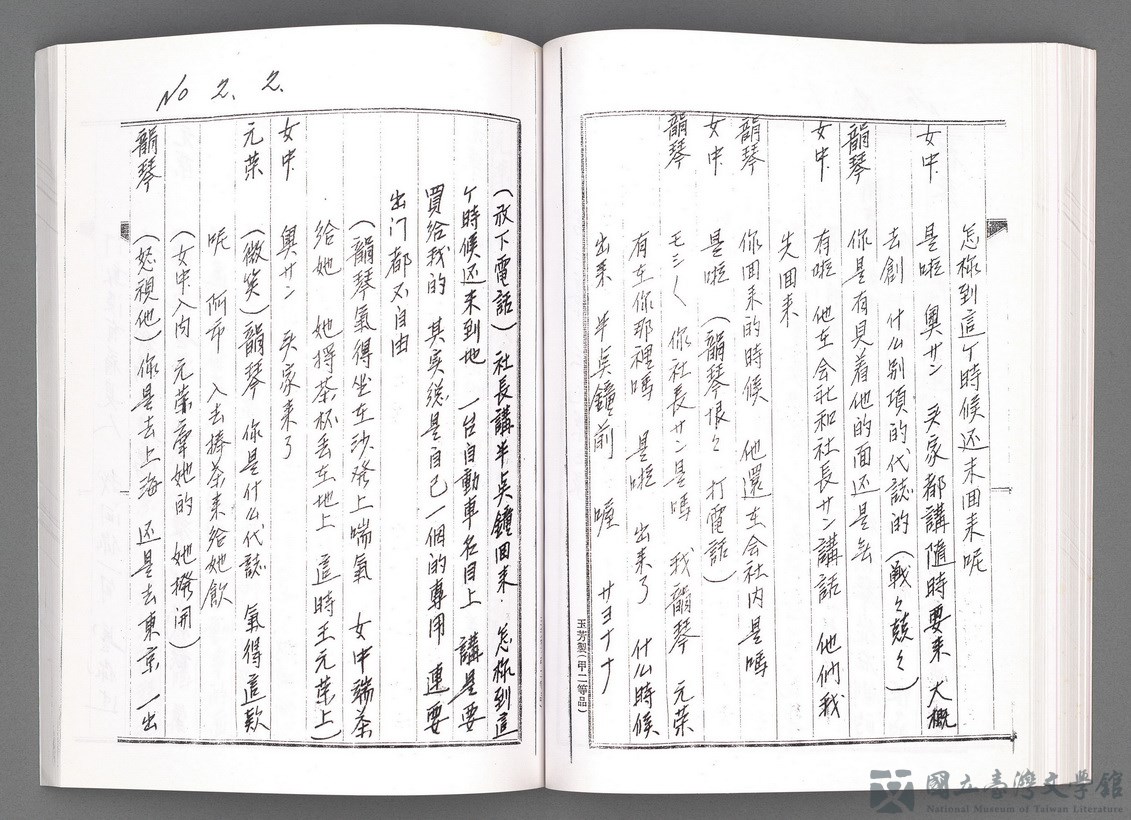 怎祢到這个時候还未回来呢
女中 是啦 奥サン 头家都講隨時要来 大概
去創 什么別項的代誌的(戦々兢々)
韻琴 你是有見着他的面还是無
女中 有啦 他在会社和社長サン講話 他們我
先回来
韻琴 你回来的時候 他還在会社内是嗎
女中 是啦 (韻琴恨々 打電話)
韻琴 モシ〱 你社長サン是嗎 我韻琴 元荣
有在你那裡嗎 是啦 出来了 什么時候
出来 半点鐘前 喔 サヨナナ
玉芳製(甲二等品)
No 2. 2.
(放下電話) 社長講半点鐘回来. 怎祢到這
个時候还未到地 一台自動車名目上 講是要
買給我的 其实总是自己一個的專用 連要
出门都不自由
(韻琴氣得坐在沙發上喘氣 女中端茶
給她 她摔茶杯丢在地上 這時王元荣上)
女中 奥サン 头家来了
元荣 (微笑)韻琴 你是什么代誌 氣得這款
呢 阿市 入去捧茶来給她飲
(女中入内 元荣牽她的 她撥開)
韻琴 (怒視他)你是去上海 还是去東京 一出
國立臺灣文學館
National Museum of Taiwan Literature